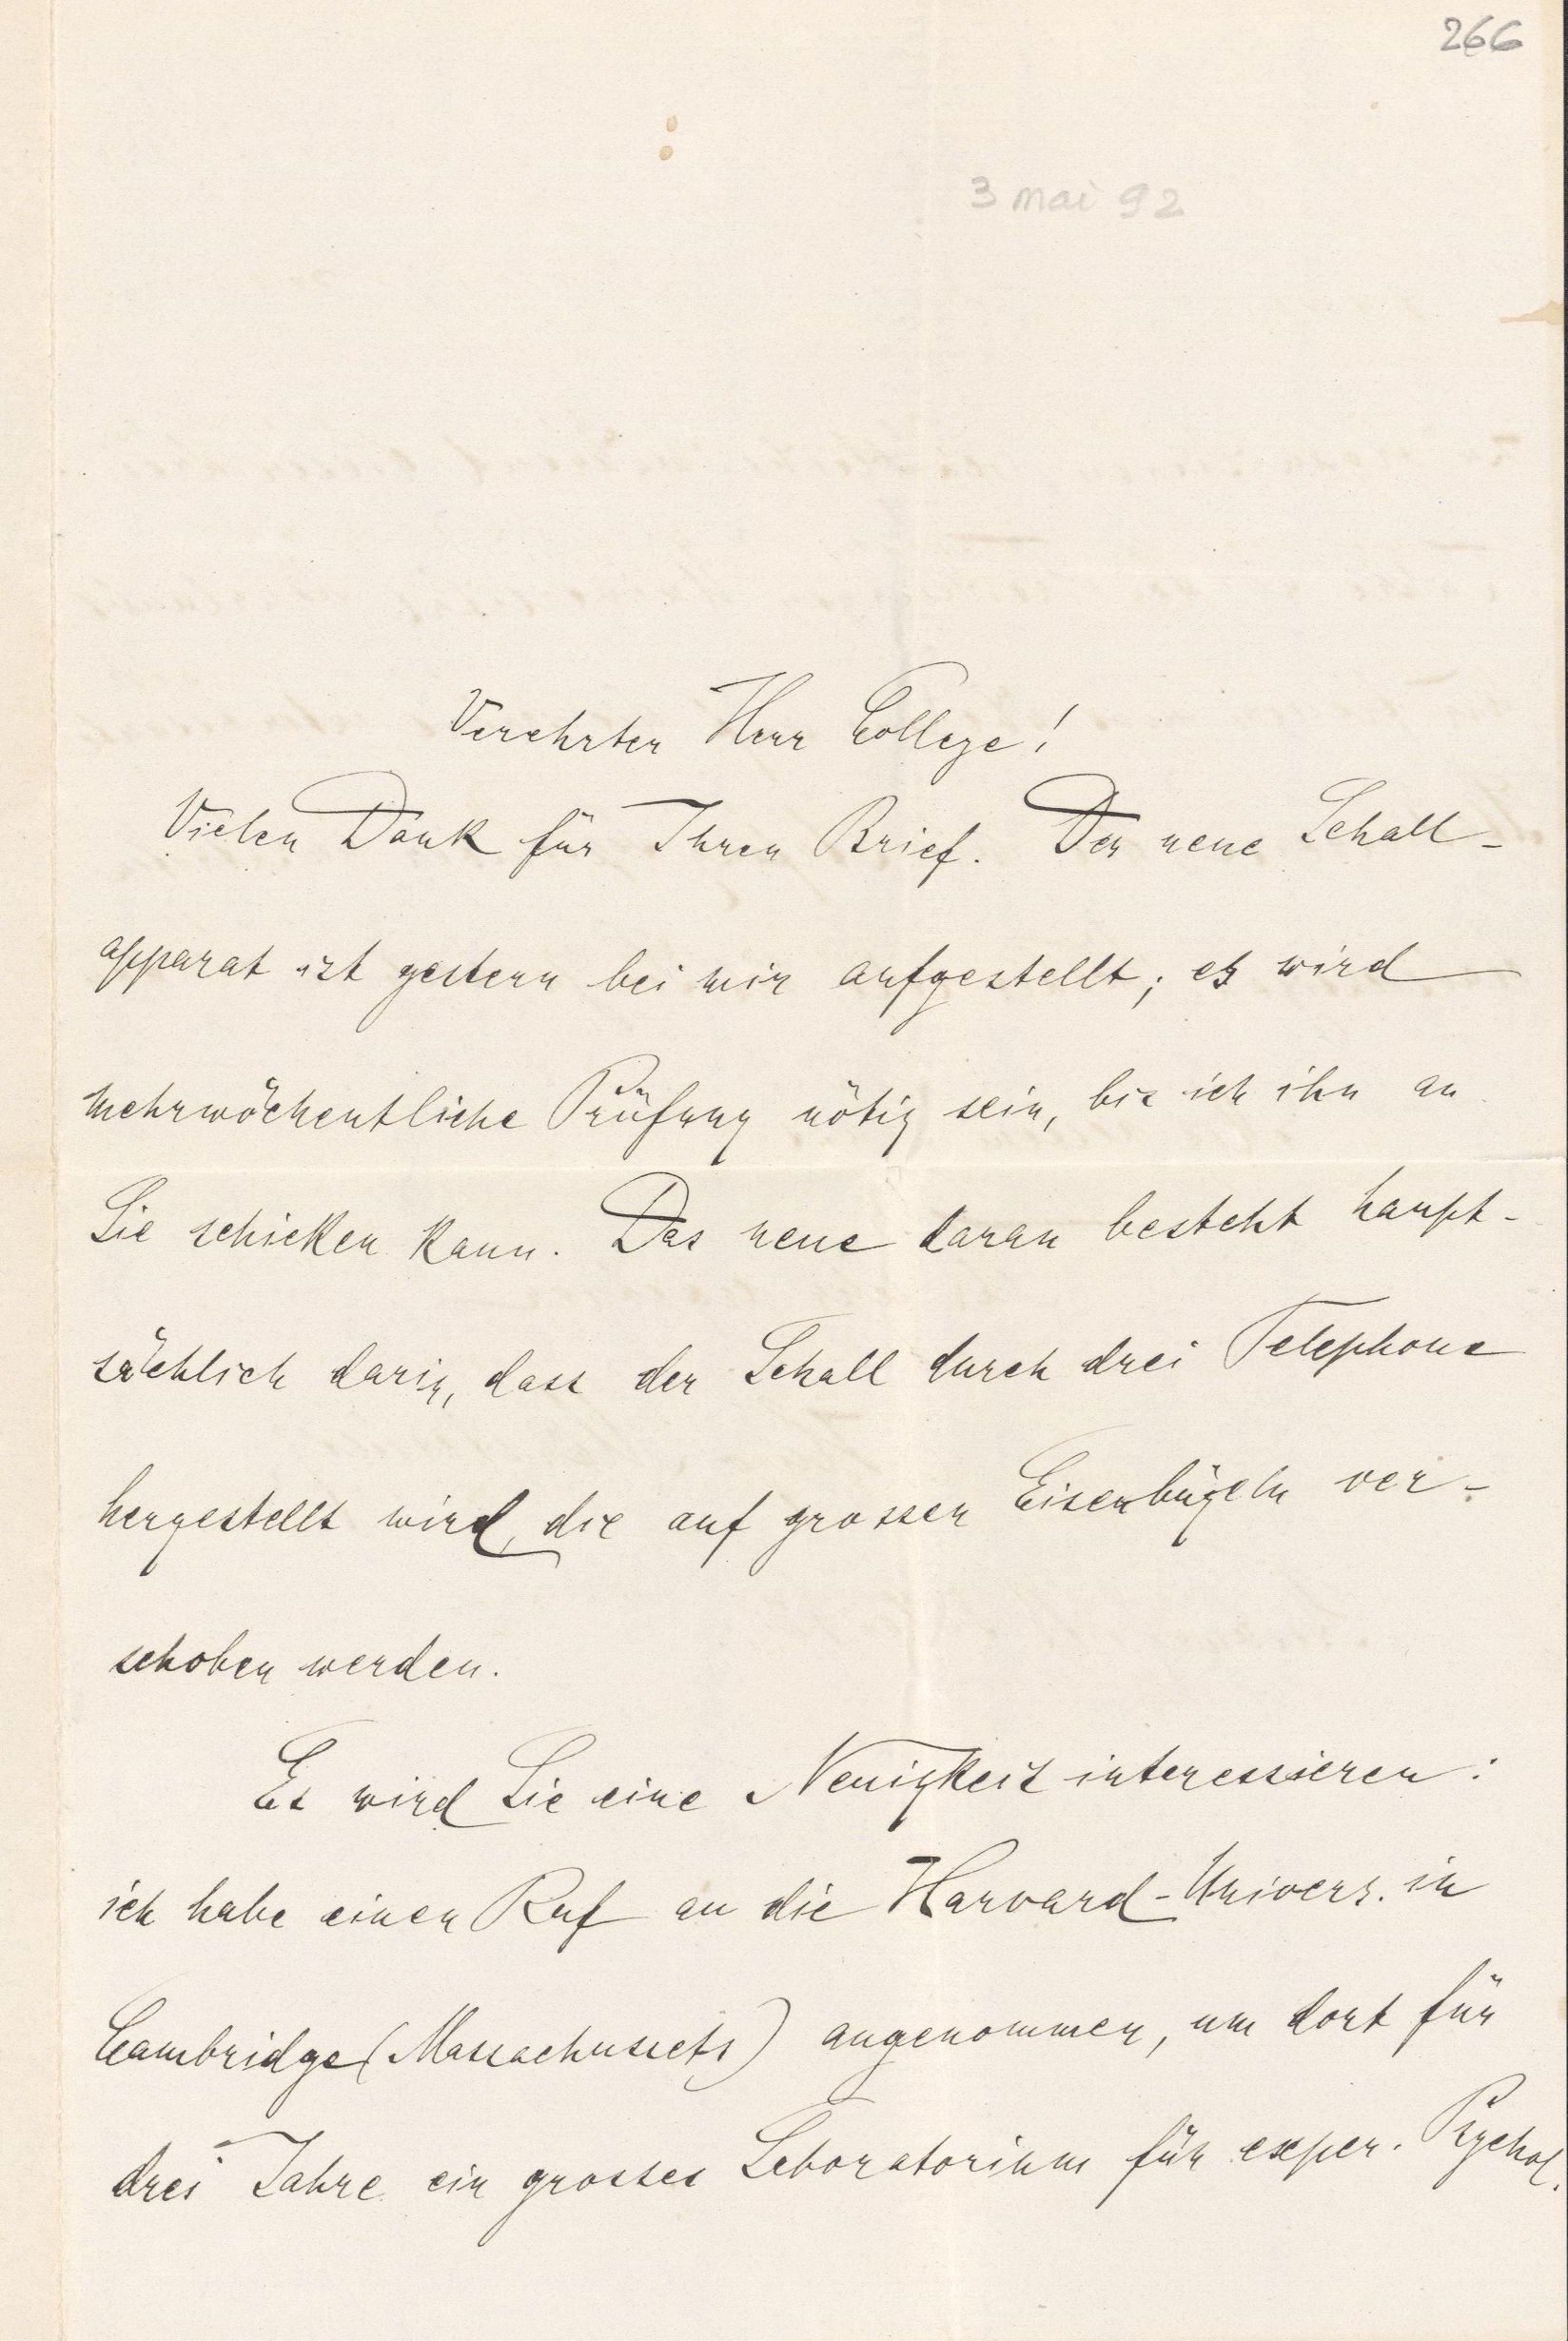 266
3 mai 92
Verehrter Herr College!
Vielen Dank für Ihren Brief. Der neue Schall-
apparat ist gestern bei mir aufgestellt; es wird
mehrwöchentliche Prüfung nötig sein, bis ich ihn an
Sie schicken kann. Das neue daran besteht haupt-
sächlich darin, dass der Schall durch drei Telephone
hergestellt wird, die auf grossen Eisenbügeln ver-
schoben werden.
Es wird Sie eine Neuigkeit interessieren:
ich habe einen Ruf an die Harvard-Univers. in
Cambridge (Massachussets) angenommen, um dort für
drei Jahre ein grosses Laboratorium für exper. Psychol.